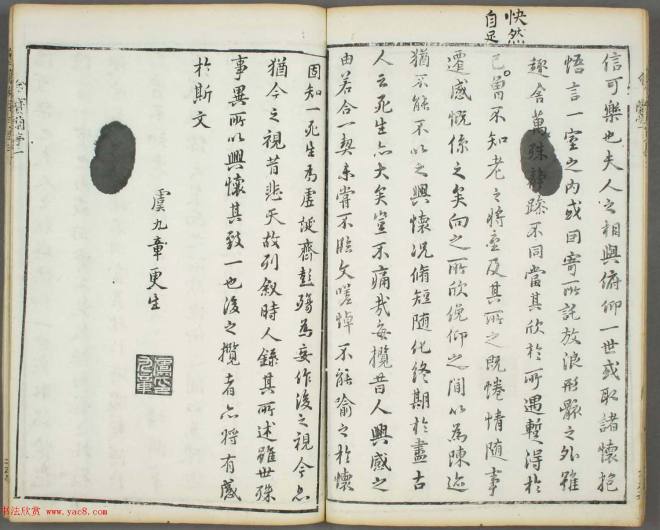 快然
自足
信可樂也夫人之相與俯仰一世或取諸懷抱
悟言一室之內或因寄所託放浪形骸之外雖
趣舍萬殊靜躁不同當其欣於所遇暫得於
己曾不知老之將至及其所之既惓情隨事
遷感慨係之矣向之所欣俛仰之間以為陳迹
猶不能不以之興懷況脩短隨化終期於盡古
人云死生亦大矣豈不痛哉每攬昔人興感之
由若合一契未嘗不臨文嗟悼不能喻之於懷
固知一死生為虛誕齊彭殤為妄作後之視今亦
猶今之視昔悲夫故列敘時人錄其所述雖世殊
事異所以興懷其致一也後之攬者亦將有感
於斯文
虞九章更生
书法欣赏 www.yac8.com